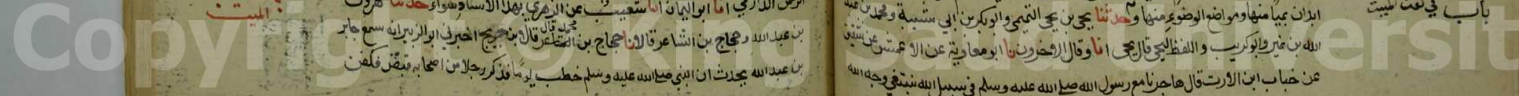 باب في كفن الميت
ابدان بميامنها ومواضع الوضوء منها وحدثنا يحيى بن يحيى التميمي وابو بكر بن ابي شيبة ومحمد بن عبد
الله بن نمير وابو كريب واللفظ ليحيى قال يحيى انا وقال الآخرون نا ابو معاوية عن الاعمش عن شقيق
عن خباب ابن الارت قال هاجرنا مع رسول الله صلى الله عليه وسلم في سبيل الله نبتغي وجه الله
الرحمن الدارمي انا ابو اليمان انا شعيب عن الزهري بهذا الاسناد سواء حدثنا هرون
الميت
بن عبد الله وحجاج بن الشاعر قالا نا حجاج بن محمد قال قال ابن جريج اخبرني ابو الزبير انه سمع جابر
بن عبد الله يحدث ان النبي صلى الله عليه وسلم خطب يوما فذكر رجلا من اصحابه قبض فكفن
Copyright King Saud University